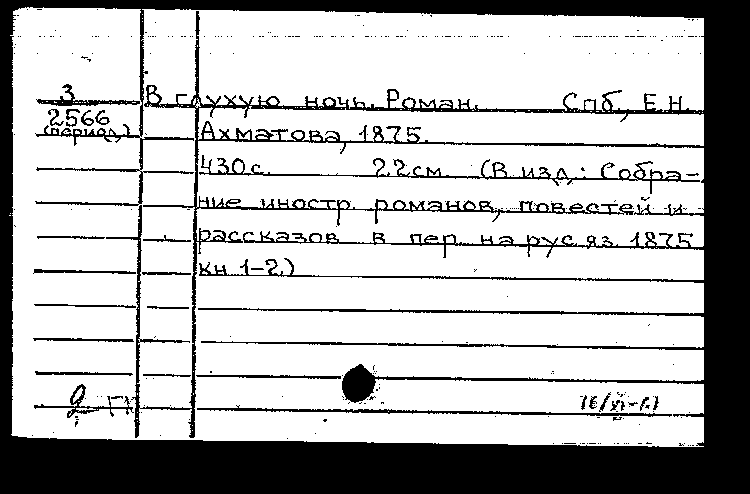 3 В глухую ночь. Роман. Спб., Е.Н.
2566 Ахматова, 1875.
(период.)
430с. 22см. (В изд.: Собра-
ние иностр. романов, повестей и
рассказов в пер. на рус яз. 1875
кн 1-2.)